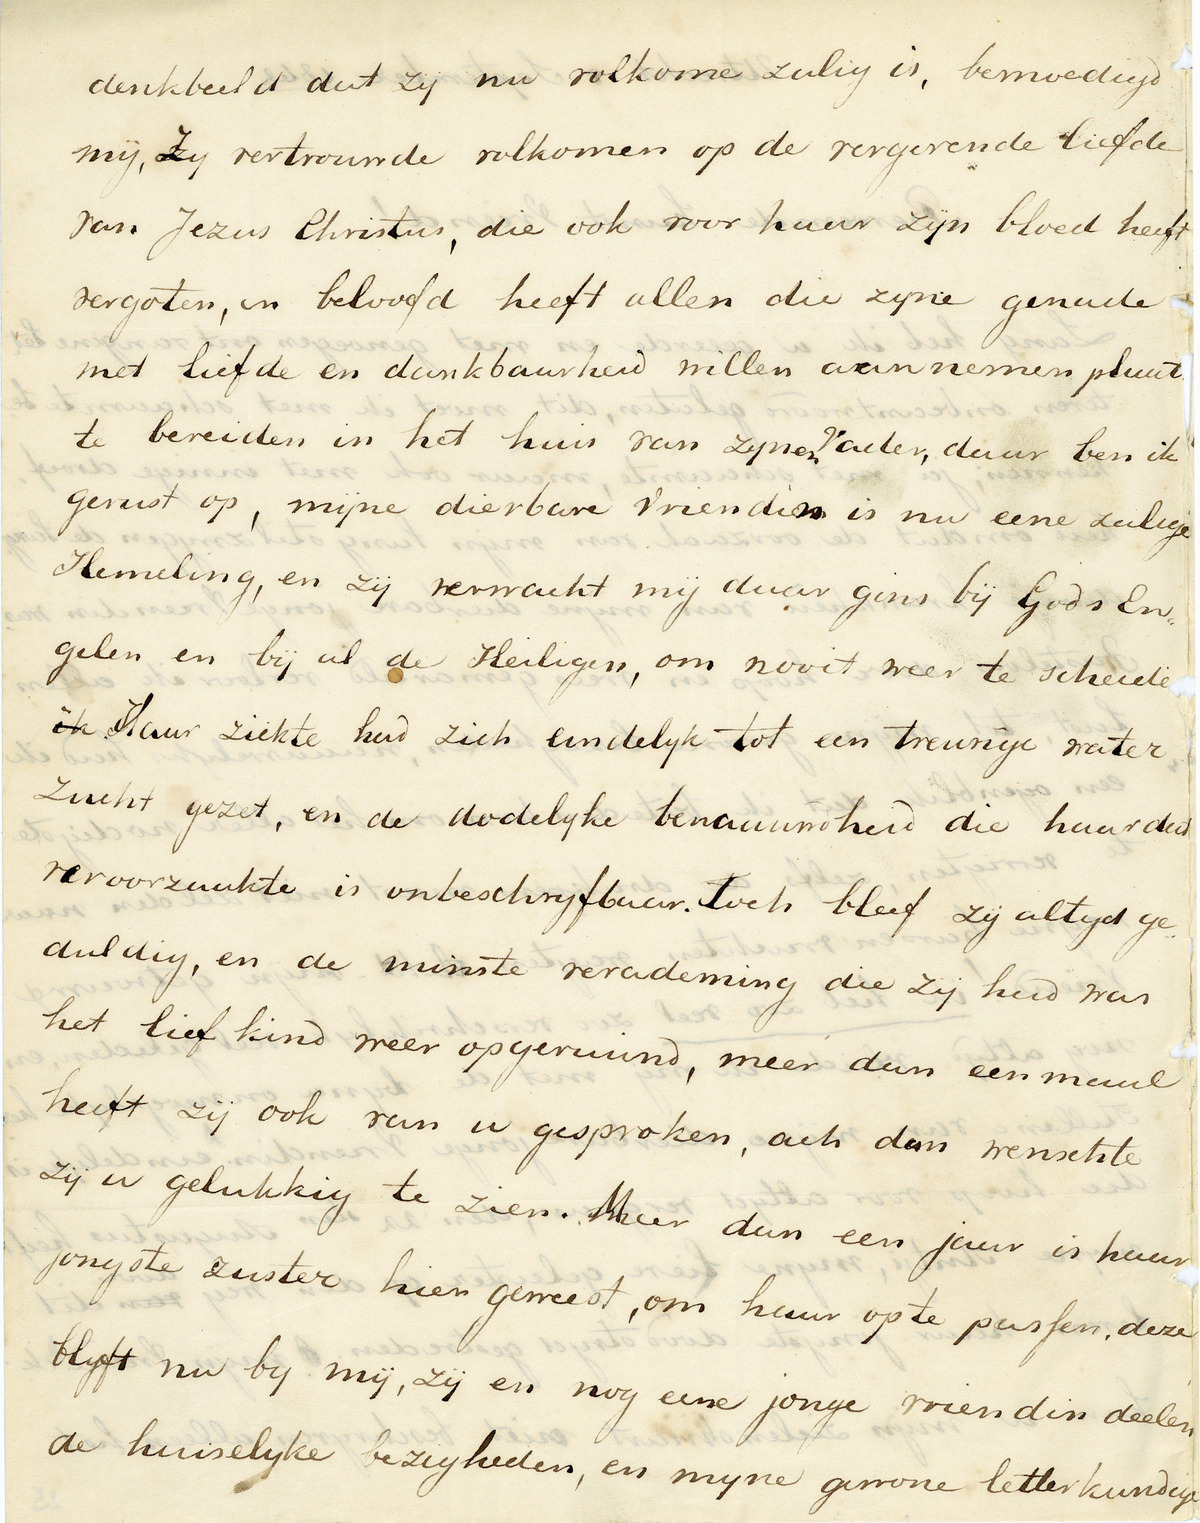 denkbeeld dat zij nu volkome zalig is, bemoedigd
mij, Zy vertrouwde volkomen op de vergevende liefde
van Jezus Christus, die ook voor haar zijn bloed heeft
vergoten, en beloofd heeft allen die zyne genade
met liefde en dankbaarheid willen aannemen plaat
te bereiden in het huis van zynen Vader, daar ben ik
gerust op, mijne dierbare Vriendin is nu eene zalige
Hemeling, en zij verwacht mij daar gins bij Gods En-
gelen en bij al de Heiligen, om nooit weer te scheide
ik Haar ziekte had zich eindelyk tot een treurige water
zucht gezet, en de dodelyke benauwdheid die haar dat
veroorzaakte is onbeschryfbaar. Toch bleef zij altyd ge
duldig, en de minste verademing die zij had was
het lief kind weer opgeruimd, meer dan eenmaal
heeft zij ook van u gesproken, ach dan wenschte
zij u gelukkig te zien. Meer dan een jaar is haar
jongste zuster hier geweest, om haar op te passen, deze
blyft nu by mij, zij en nog eene jonge vriendin deelen
de huiselyke bezigheden, en myne gewone letterkundige